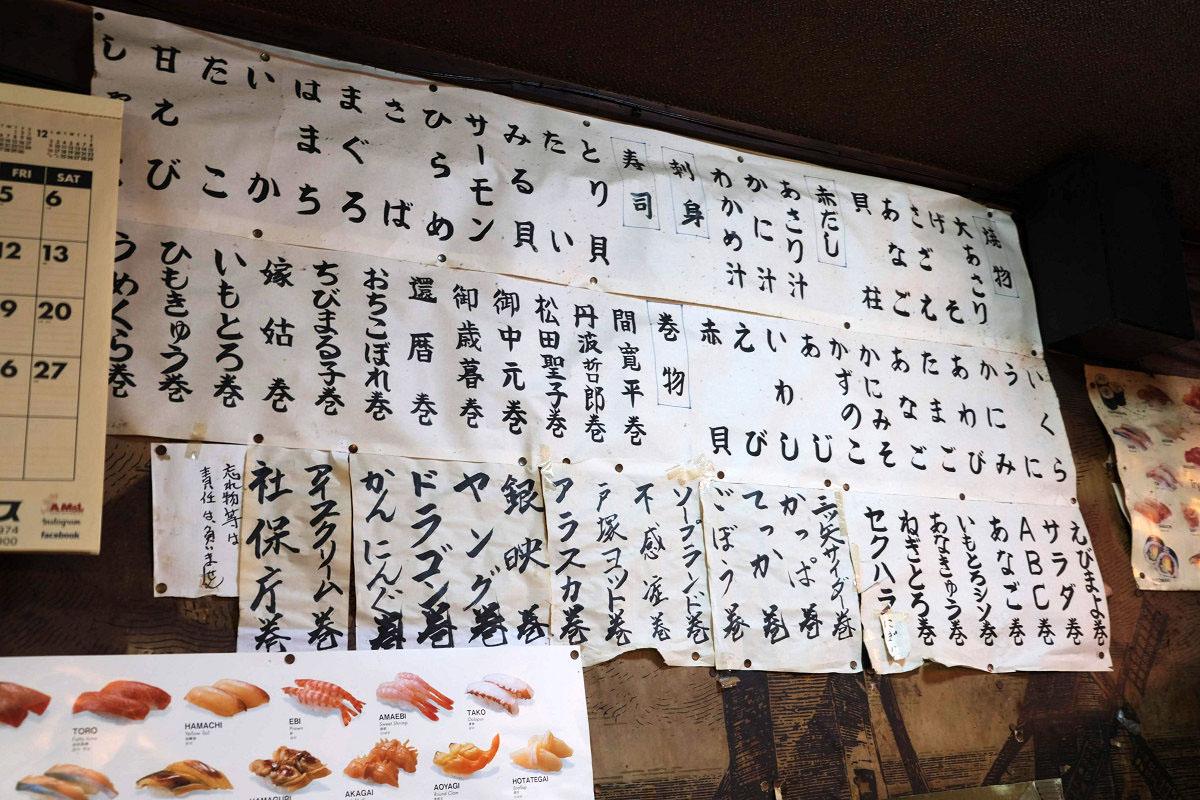 焼物
大あさり
げそ
さざえ
あなご
貝柱
赤だし
あさり汁
かに汁
わかめ汁
刺身
寿司
とり貝
たい
みる貝
サーモン
ひらめ
さば
まぐろ
はまち
いか
たこ
甘えび
いくら
うに
かに
あわび
たまご
あなご
かにみそ
かずのこ
あじ
いわし
えび
赤貝
巻物
間寛平巻
丹波哲郎巻
松田聖子巻
御中元巻
御歳暮巻
還暦巻
おちこぼれ巻
ちびまる子巻
嫁姑巻
いもとろ巻
ひもきゅう巻
うめくら巻
えびまよ巻
サラダ巻
ABC巻
あなご巻
いもとろシソ巻
あなきゅう巻
ねぎとろ巻
セクハラ
三ッ矢サイダー巻
かっぱ巻
てっか巻
ごぼう巻
ソープランド巻
不感症巻
戸塚ヨット巻
アラスカ巻
銀映巻
ヤング巻
ドラゴン巻
かんにんぐ巻
アイスクリーム巻
社保庁巻
忘れ物等は
責任は負いません
12
FRI SAT
5 6
12 13
19 20
26 27
Instagram
facebook
TORO
HAMACHI
Yellow Tail
EBI
Prawn
AMAEBI
Sweet Shrimp
TAKO
Octopus
HAMAGURI
AKAGAI
AOYAGI
Round Clam
HOTATEGAI
Scallop